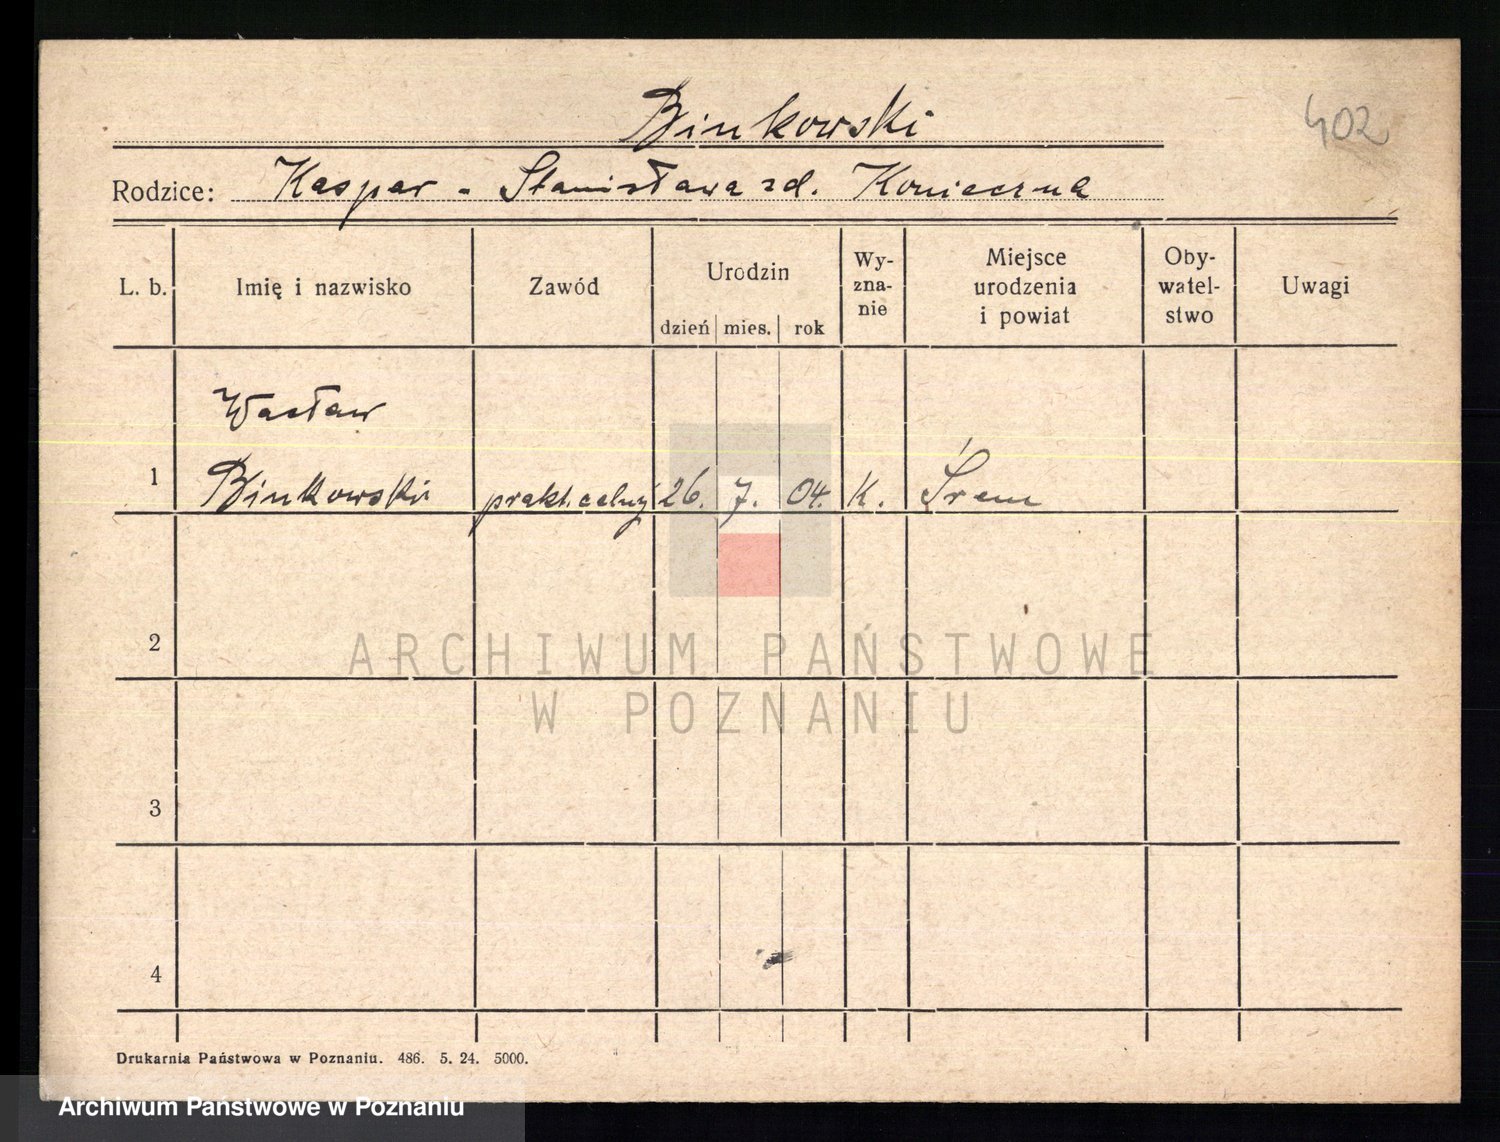 Binkowski
402
Rodzice: Kaspar - Stanisława zd. Konieczna
L. b. Imię i nazwisko Zawód Urodzin dzień mies. rok Wy-zna-nie Miejsce urodzenia i powiat Oby-watel-stwo Uwagi
Wacław
1 Binkowski prakt. celny 26. 7. 04. K. Śrem
2
3
4
ARCHIWUM PAŃSTWOWE
W POZNANIU
Drukarnia Państwowa w Poznaniu. 486. 5. 24. 5000.
Archiwum Państwowe w Poznaniu